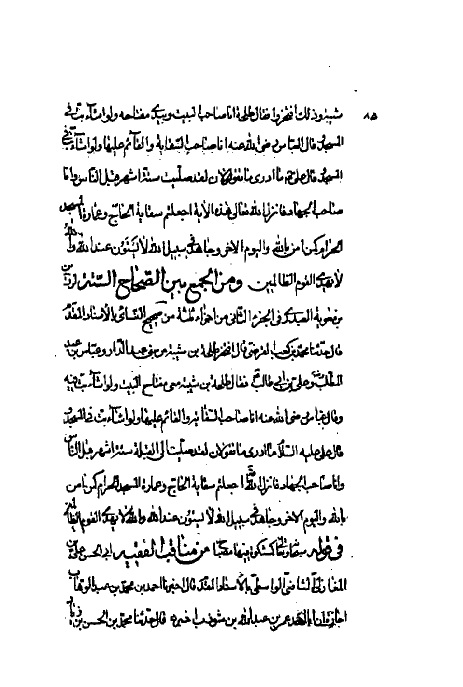 ٨٥
شيبة وذلك افتخروا فقال طلحة انا صاحب البيت وبيدي مفتاحه ولو اشاء بت في
المسجد قال العباس رضي الله عنه انا صاحب السقاية والقائم عليها ولو اشاء بت في
المسجد قال علي ما ادري ما تقولان لقد صليت ستة اشهر قبل الناس وانا
صاحب الجهاد فانزل الله تعالى هذه الآية اجعلتم سقاية الحاج وعمارة المسجد
الحرام كمن امن بالله واليوم الاخر وجاهد في سبيل الله لا يستون عند الله والله
لا يهدي القوم الظالمين ومن الجمع بين الصحاح الستة لرزين
بن معوية العبدري في الجزء الثاني من اجزاء ثلثة من صحيح النسائي بالاسناد المقدم
قال حدثنا محمد بن كعب القرظي قال افتخر طلحة بن شيبة من بني عبد الدار وعباس بن عبد
المطلب وعلي بن ابي طالب فقال طلحة بن شيبة معي مفتاح البيت ولو اشاء بت فيه
وقال عباس رضي الله عنه انا صاحب السقاية والقائم عليها ولو اشاء بت في المسجد
قال علي عليه السلام ما ادري ما تقولان لقد صليت الى القبلة ستة اشهر قبل الناس
وانا صاحب الجهاد فانزل الله اجعلتم سقاية الحاج وعمارة المسجد الحرام كمن امن
بالله واليوم الاخر وجاهد في سبيل الله لا يستون عند الله والله لا يهدي القوم الظالمين
في قوله تعالى كمشكوة فيها مصباح من مناقب الفقيه ابي الحسن علي بن
المغازلي الشافعي الواسطي بالاسناد المقدم قال اخبرنا احمد بن محمد بن عبد الوهاب
اجازة ان ابا احمد عمر بن عبد الله بن شوذب اخبرهم قال حدثنا محمد بن الحسن بن زياد